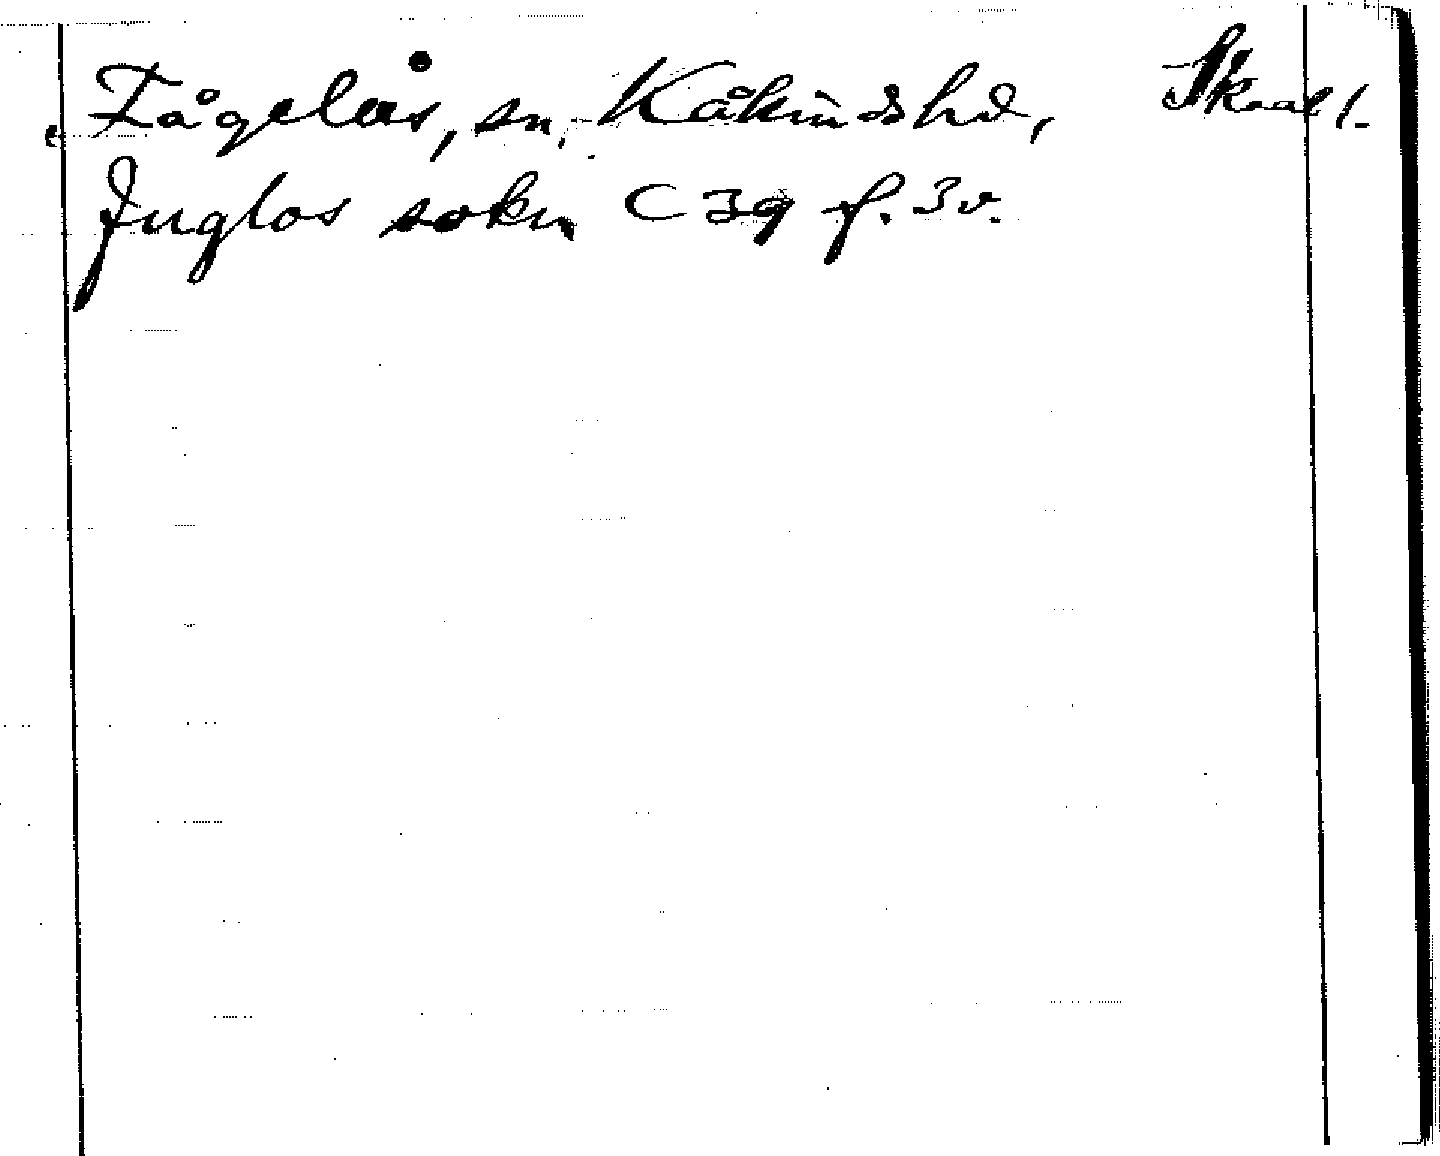 Fågelås, sn, Kåkinds hd, Skarab. l.
Fuglos sokn C 39 f. 3v.